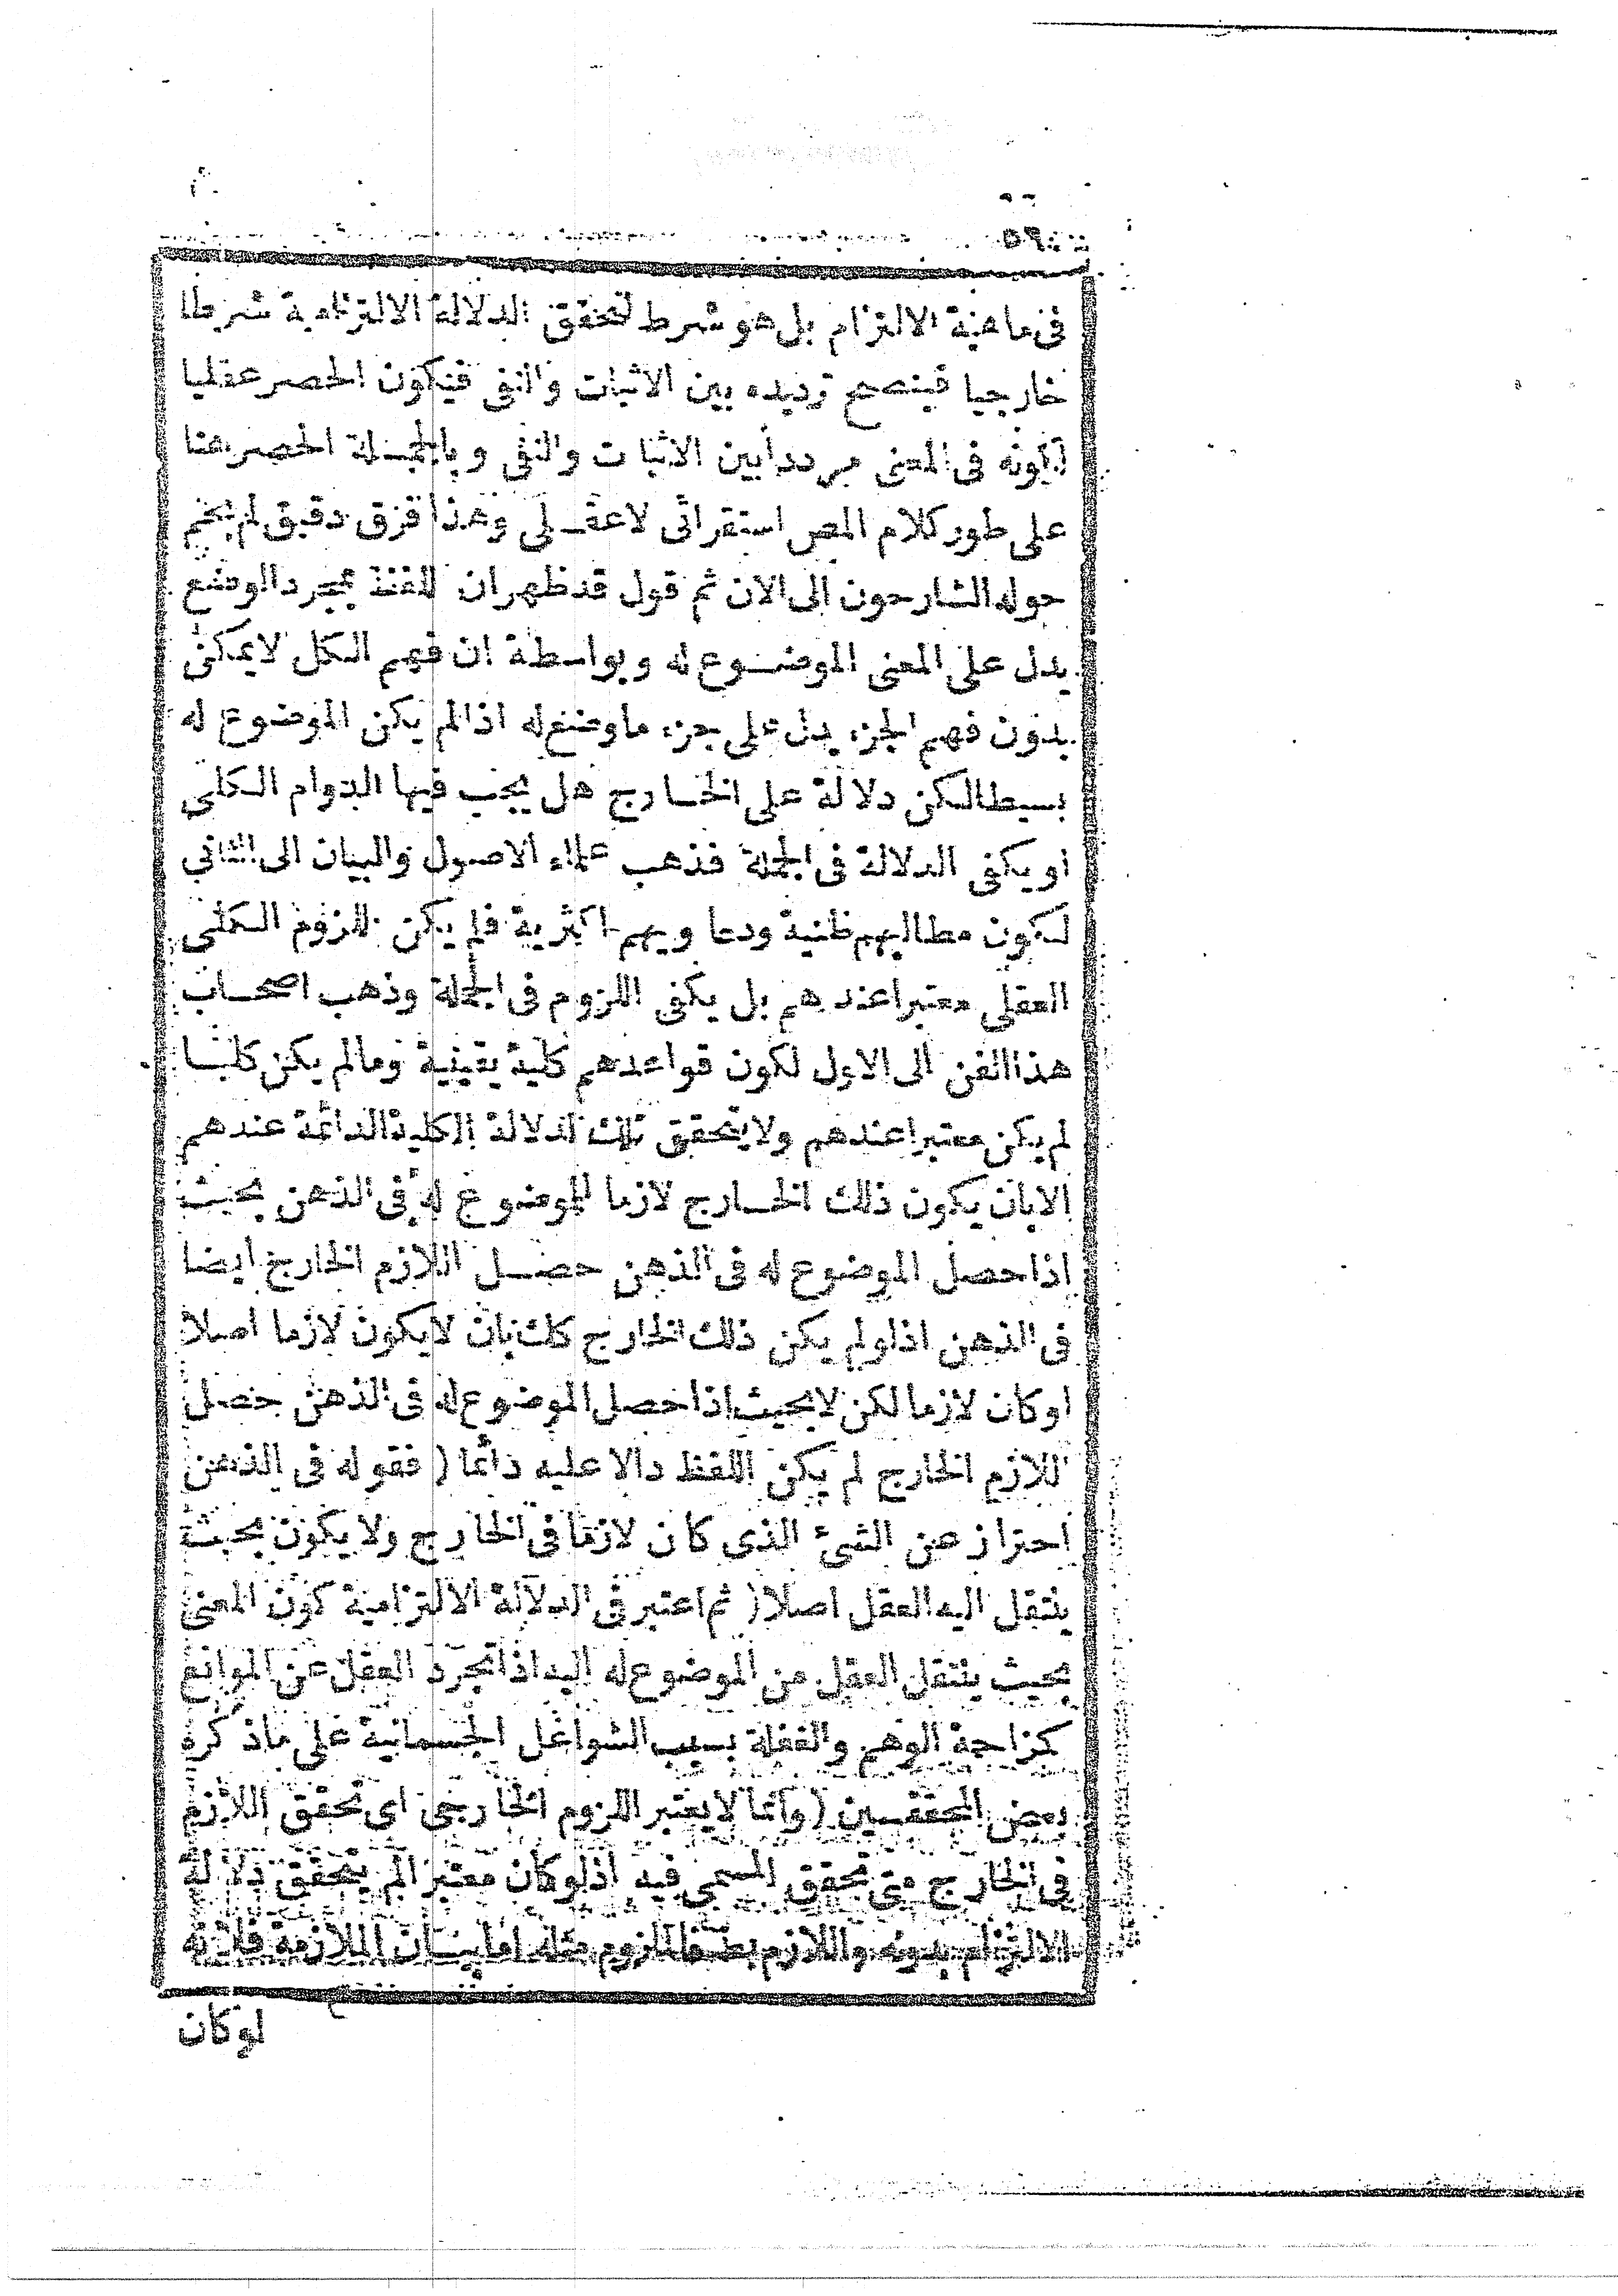 ٥٢
فى ماهية الالتزام بل هو شرط لتحقق الدلالة الالتزامية شرطا
خارجيا فيصح ترديده بين الاثبات والنفى فيكون الحصر عقليا
لكونه فى المعنى مرددا بين الاثبات والنفى وبالجملة الحصر هنا
على طور كلام المص استقرائى لا عقلى وهذا فرق دقيق لم يحم
حوله الشارحون الى الان ثم قول قد ظهر ان اللفظ بمجرد الوضع
يدل على المعنى الموضوع له وبواسطة ان فهم الكل لا يمكن
بدون فهم الجزء يدل على جزء ما وضع له اذا لم يكن الموضوع له
بسيطا لكن دلالة على الخارج هل يجب فيها الدوام الكلى
او يكفى الدلالة فى الجملة فذهب علماء الاصول والبيان الى الثانى
لكون مطالبهم ظنية ودعاويهم اكثرية فلم يكن اللزوم الكلى
العقلى معتبرا عندهم بل يكفى اللزوم فى الجملة وذهب اصحاب
هذا الفن الى الاول لكون قواعدهم كلية يقينية وما لم يكن كليا
لم يكن معتبرا عندهم ولا يتحقق تلك الدلالة الكلية الدائمة عندهم
الا بان يكون ذلك الخارج لازما للموضوع له فى الذهن بحيث
اذا حصل الموضوع له فى الذهن حصل اللازم الخارج ايضا
فى الذهن اذ لو لم يكن ذلك الخارج كك بان لا يكون لازما اصلا
او كان لازما لكن لا بحيث اذا حصل الموضوع له فى الذهن حصل
اللازم الخارج لم يكن اللفظ دالا عليه دائما ( فقوله فى الذهن
احتراز عن الشئ الذى كان لازما فى الخارج ولا يكون بحيث
ينتقل اليه العقل اصلا ( ثم اعتبر فى الدلالة الالتزامية كون المعنى
بحيث ينتقل العقل من الموضوع له اليه اذا تجرد العقل عن الموانع
كمزاحمة الوهم والغفلة بسبب الشواغل الجسمانية على ما ذكره
بعض المحققين ( وانما لا يعتبر اللزوم الخارجى اى تحقق اللازم
فى الخارج متى تحقق المسمى فيه اذ لو كان معتبرا لم يتحقق دلالة
الالتزام بدونه واللازم بط فالملزوم مثله اما بيان الملازمة فلانه
لو كان